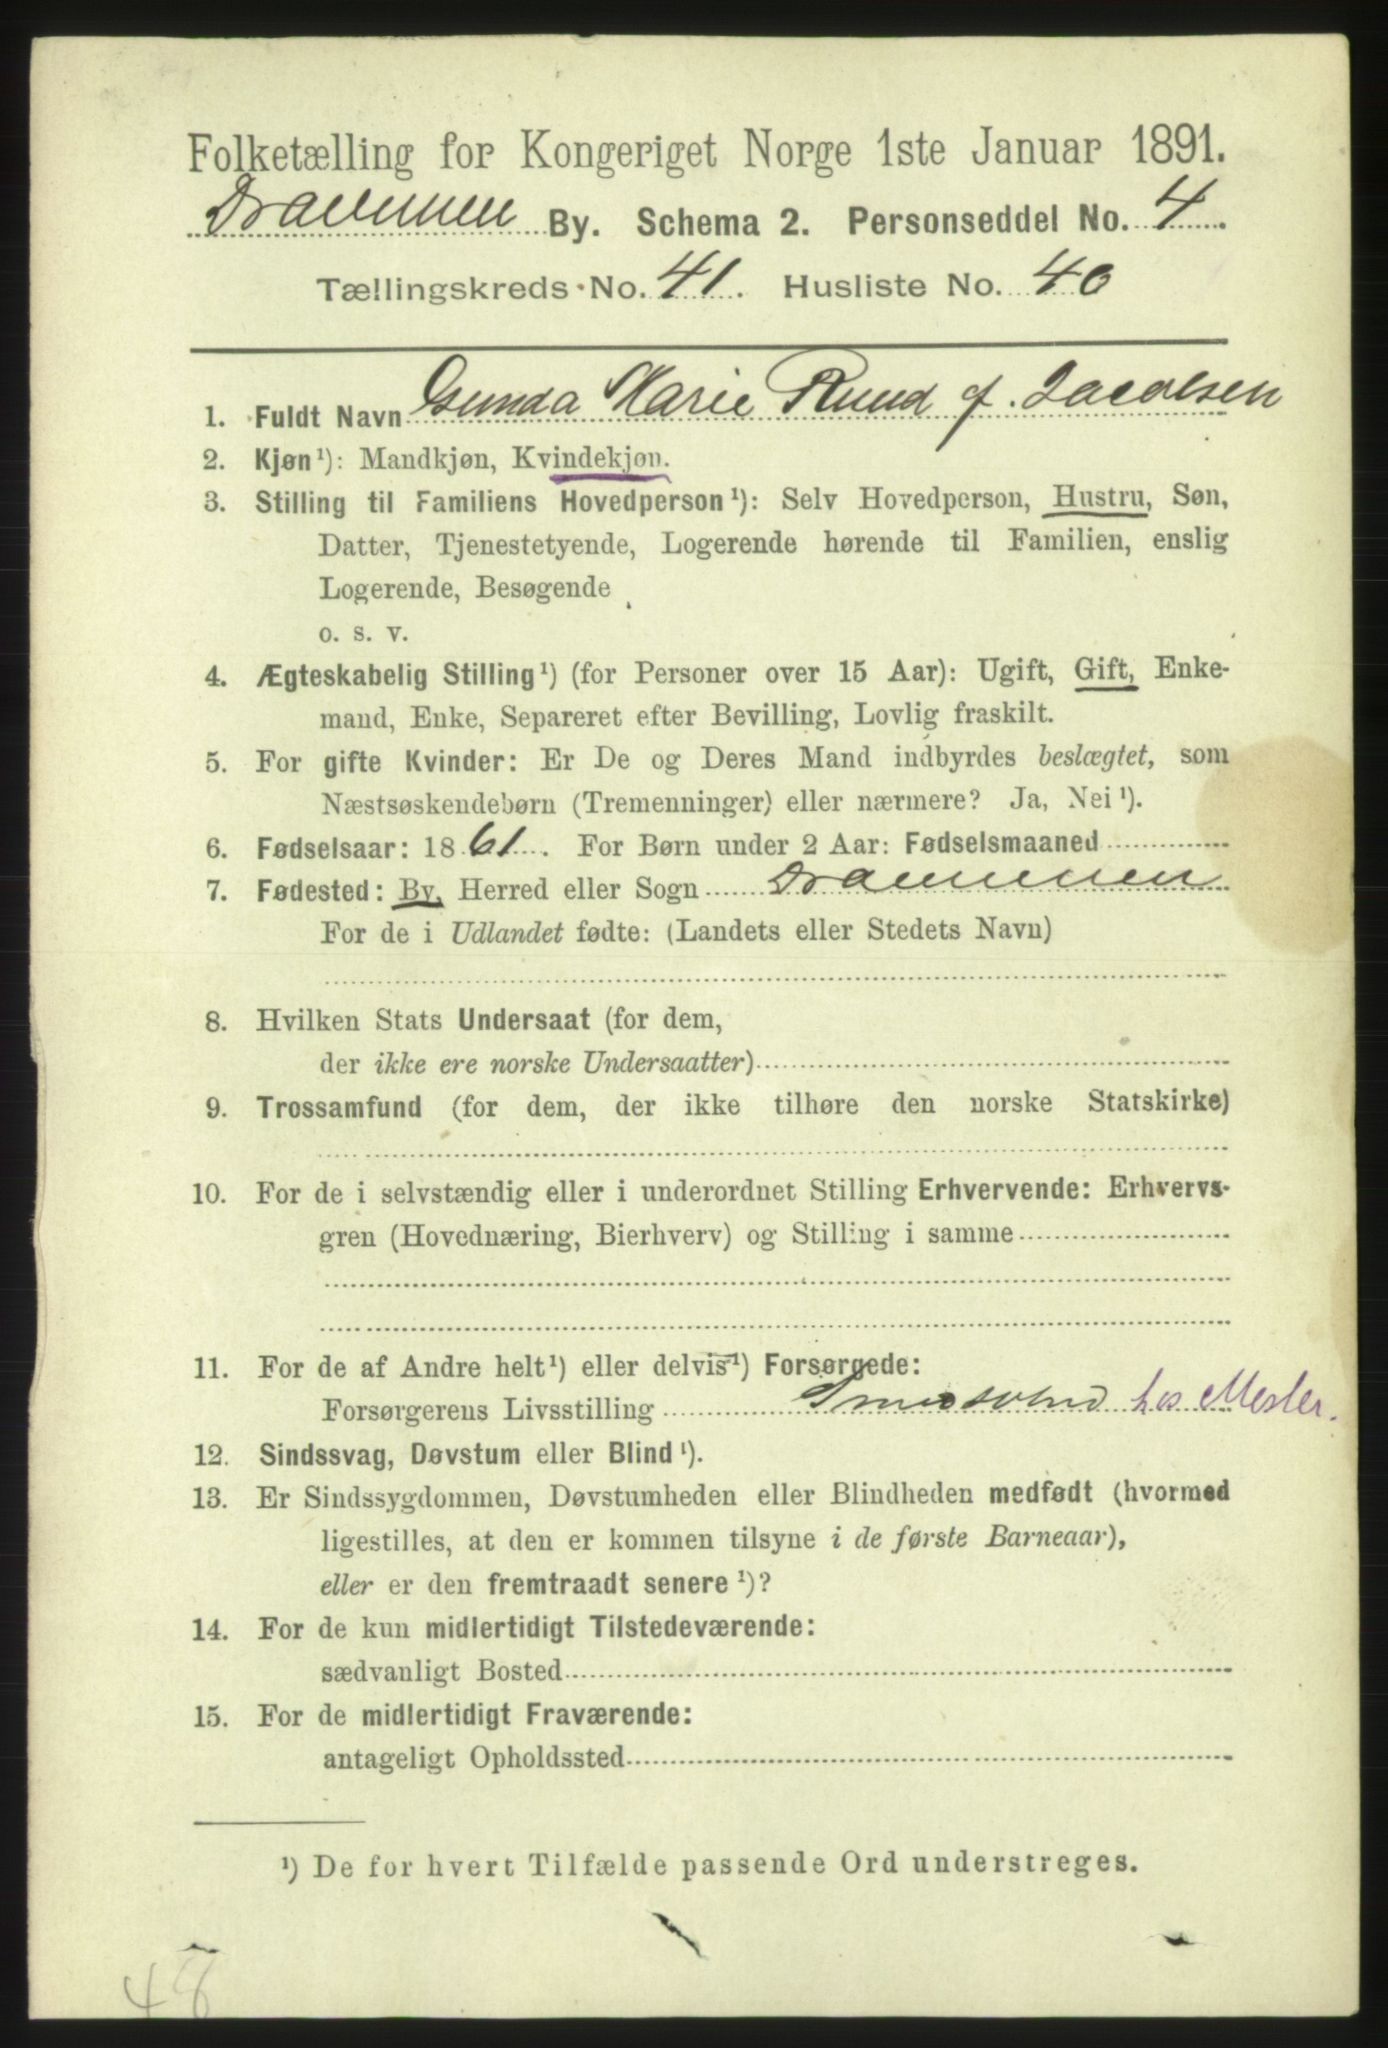 Folketælling for Kongeriget Norge 1ste Januar 1891.
Drammen By. Schema 2. Personseddel No. 4.
Tællingskreds No. 41. Husliste No. 40
1. Fuldt Navn Gunda Marie Ruud f. Jacobsen
2. Kjøn¹): Mandkjøn, Kvindekjøn.
3. Stilling til Familiens Hovedperson¹): Selv Hovedperson, Hustru, Søn,
Datter, Tjenestetyende, Logerende hørende til Familien, enslig
Logerende, Besøgende
o. s. v.
4. Ægteskabelig Stilling¹) (for Personer over 15 Aar): Ugift, Gift, Enke-
mand, Enke, Separeret efter Bevilling, Lovlig fraskilt.
5. For gifte Kvinder: Er De og Deres Mand indbyrdes beslægtet, som
Næstsøskendebørn (Tremenninger) eller nærmere? Ja, Nei¹).
6. Fødselsaar: 1861. For Børn under 2 Aar: Fødselsmaaned
7. Fødested: By, Herred eller Sogn Drammen
For de i Udlandet fødte: (Landets eller Stedets Navn)
8. Hvilken Stats Undersaat (for dem,
der ikke ere norske Undersaatter)
9. Trossamfund (for dem, der ikke tilhøre den norske Statskirke)
10. For de i selvstændig eller i underordnet Stilling Erhvervende: Erhvervs-
gren (Hovednæring, Bierhverv) og Stilling i samme
11. For de af Andre helt¹) eller delvis¹) Forsørgede:
Forsørgerens Livsstilling hos Mester.
12. Sindssvag, Døvstum eller Blind¹).
13. Er Sindssygdommen, Døvstumheden eller Blindheden medfødt (hvormed
ligestilles, at den er kommen tilsyne i de første Barneaar),
eller er den fremtraadt senere¹)?
14. For de kun midlertidigt Tilstedeværende:
sædvanligt Bosted
15. For de midlertidigt Fraværende:
antageligt Opholdssted
¹) De for hvert Tilfælde passende Ord understreges.
48